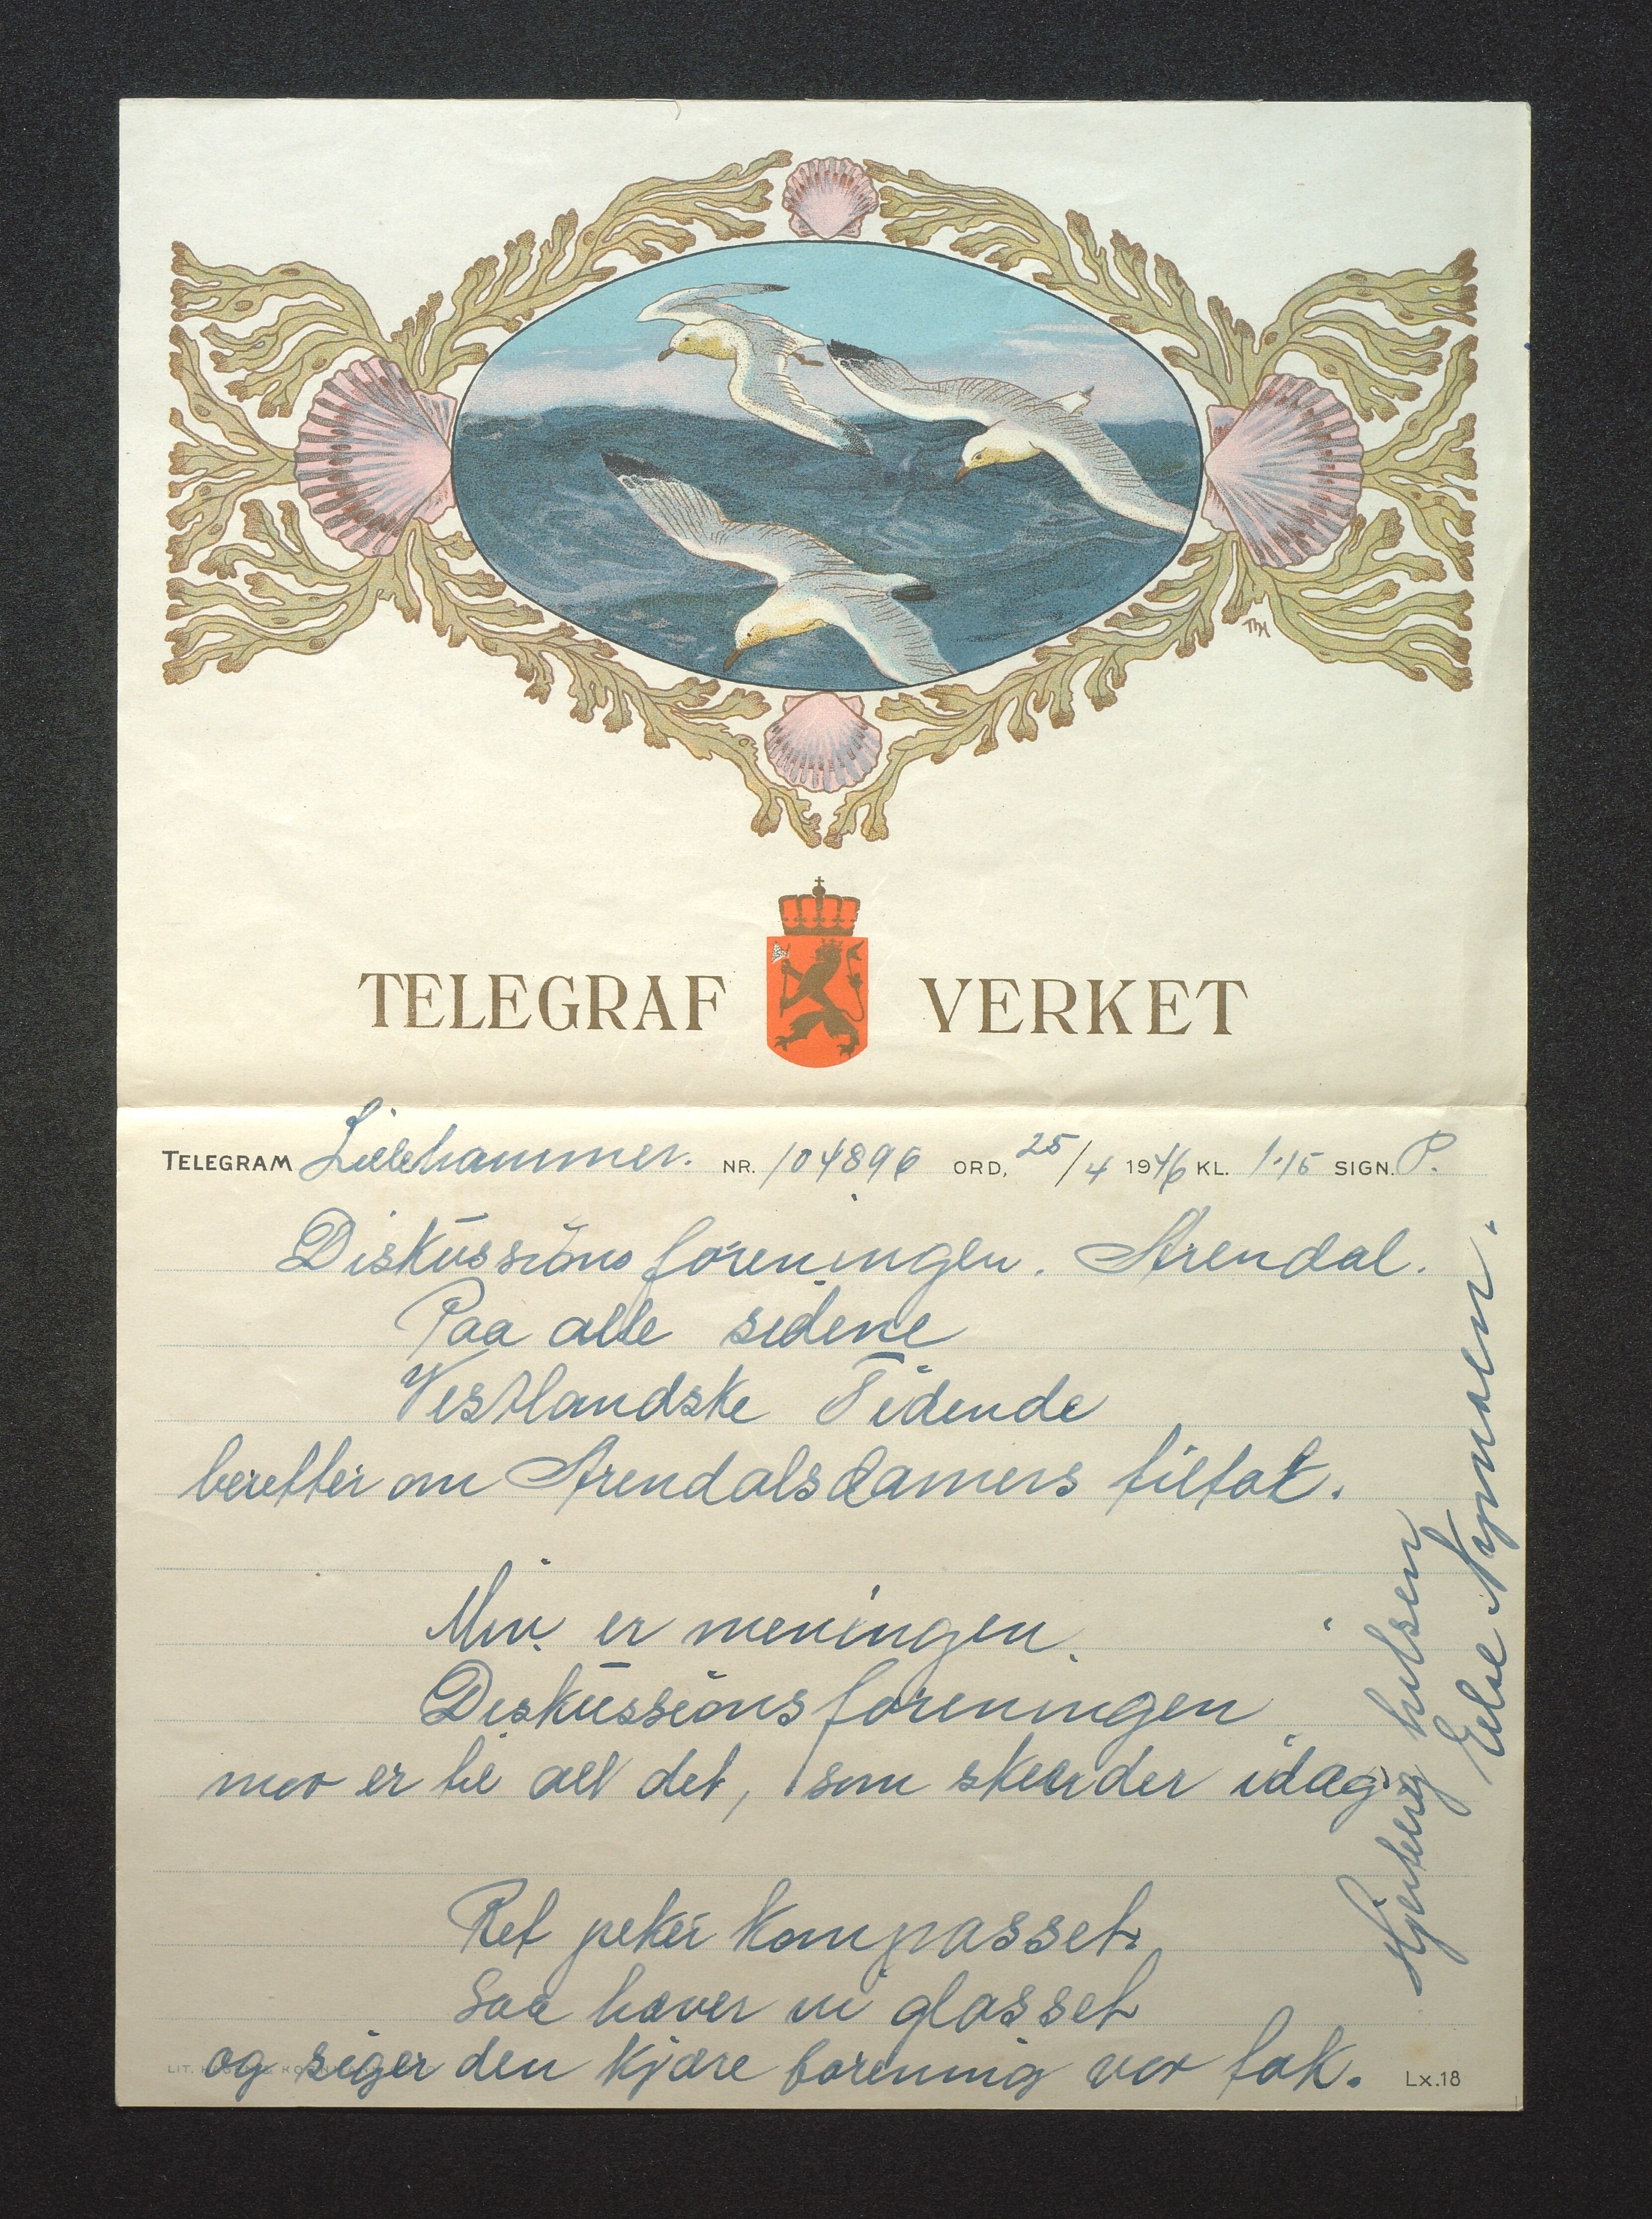 TELEGRAF VERKET
TELEGRAM Lillehammer. NR. 104896 ORD, 25/4 1946 KL. 1.15 SIGN. P.
Diskussionsforeningen. Arendal.
Paa alle sidene
Vestlandske Tidende
beretter om Arendalsdamers tiltak.
Min er meningen.
Diskussionsforeningen
mor er til alt det, som skeeder idag
Ret peker kompasset.
Saa hæver vi glasset
og siger den kjære forening vor tak.
Hjertelig hilsen
Elise Nymoen.
LIT.
Lx.18